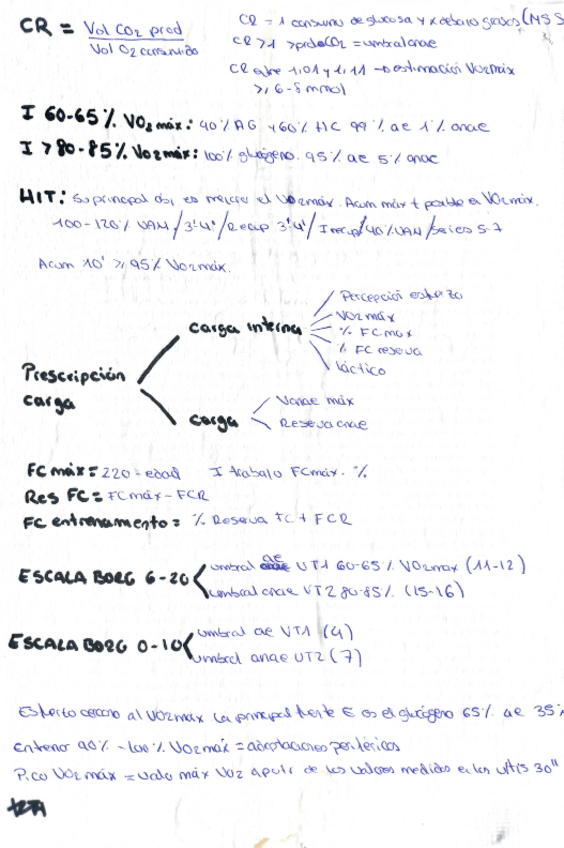 CR = Vol CO2 prod
Vol O2 consumido
CR = 1 consumo de glucosa y x debajo grasas (MSS
CR > 1 > prod CO2 = umbral anae
CR entre 1,01 y 1,11 → estimación VO2máx
≥ 6-8 mmol
I 60-65% VO2 máx: 40% AG y 60% HC 99% ae 1% anae
I > 80-85% VO2 máx: 100% glucógeno. 95% ae 5% anae
HIT: Su principal obj es mejorar el VO2máx. Acum máx t posible a VO2máx.
100-120% VAM / 3'-4' / Recup 3'-4' / I recup / 40% VAM / Series 5-7
Acum 10' ≥ 95% VO2máx.
Prescripción carga
carga interna
Percepción esfuerzo
VO2 máx
% FC max
% FC reserva
láctico
carga
Vanae máx
Reserva anae
FC máx = 220 - edad I trabajo FCmáx. %
Res FC = FCmáx - FCR
FC entrenamiento = % Reserva FC + FCR
ESCALA BORG 6-20
umbral ae VT1 60-65% VO2max (11-12)
umbral anae VT2 80-85% (15-16)
ESCALA BORG 0-10
umbral ae VT1 (4)
umbral anae VT2 (7)
Esfuerzo cercano al VO2max la principal fuente E es el glucógeno 65% ae 35%
entreno 90% - 100% VO2máx = adaptaciones periféricas
Pico VO2 máx = valor máx VO2 a partir de los valores medidos en los ultis 30"